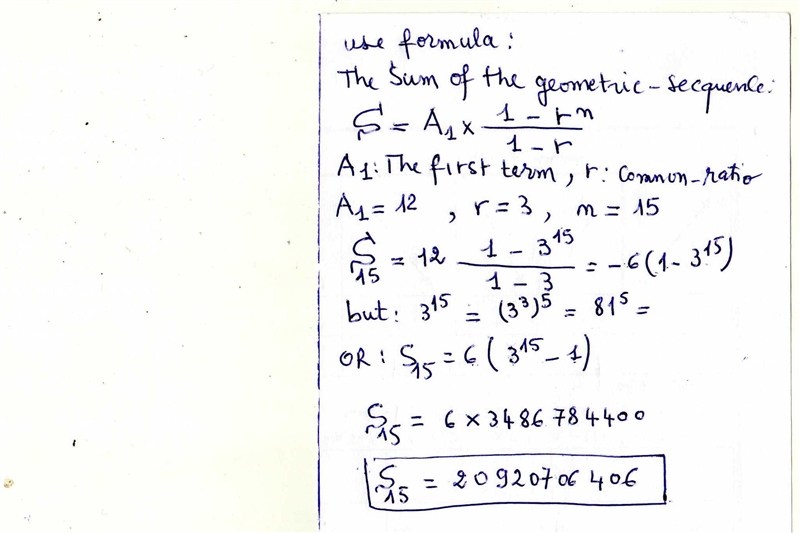 use formula:
The Sum of the geometric-secquence:
S = A1 x (1 - r^n)/(1 - r)
A1: The first term, r: common-ratio
A1 = 12 , r = 3 , n = 15
S15 = 12 (1 - 3^15)/(1 - 3) = -6 (1 - 3^15)
but: 3^15 = (3^3)^5 = 81^5 =
OR: S15 = 6 ( 3^15 - 1)
S15 = 6 x 3486 784400
S15 = 20920706 406